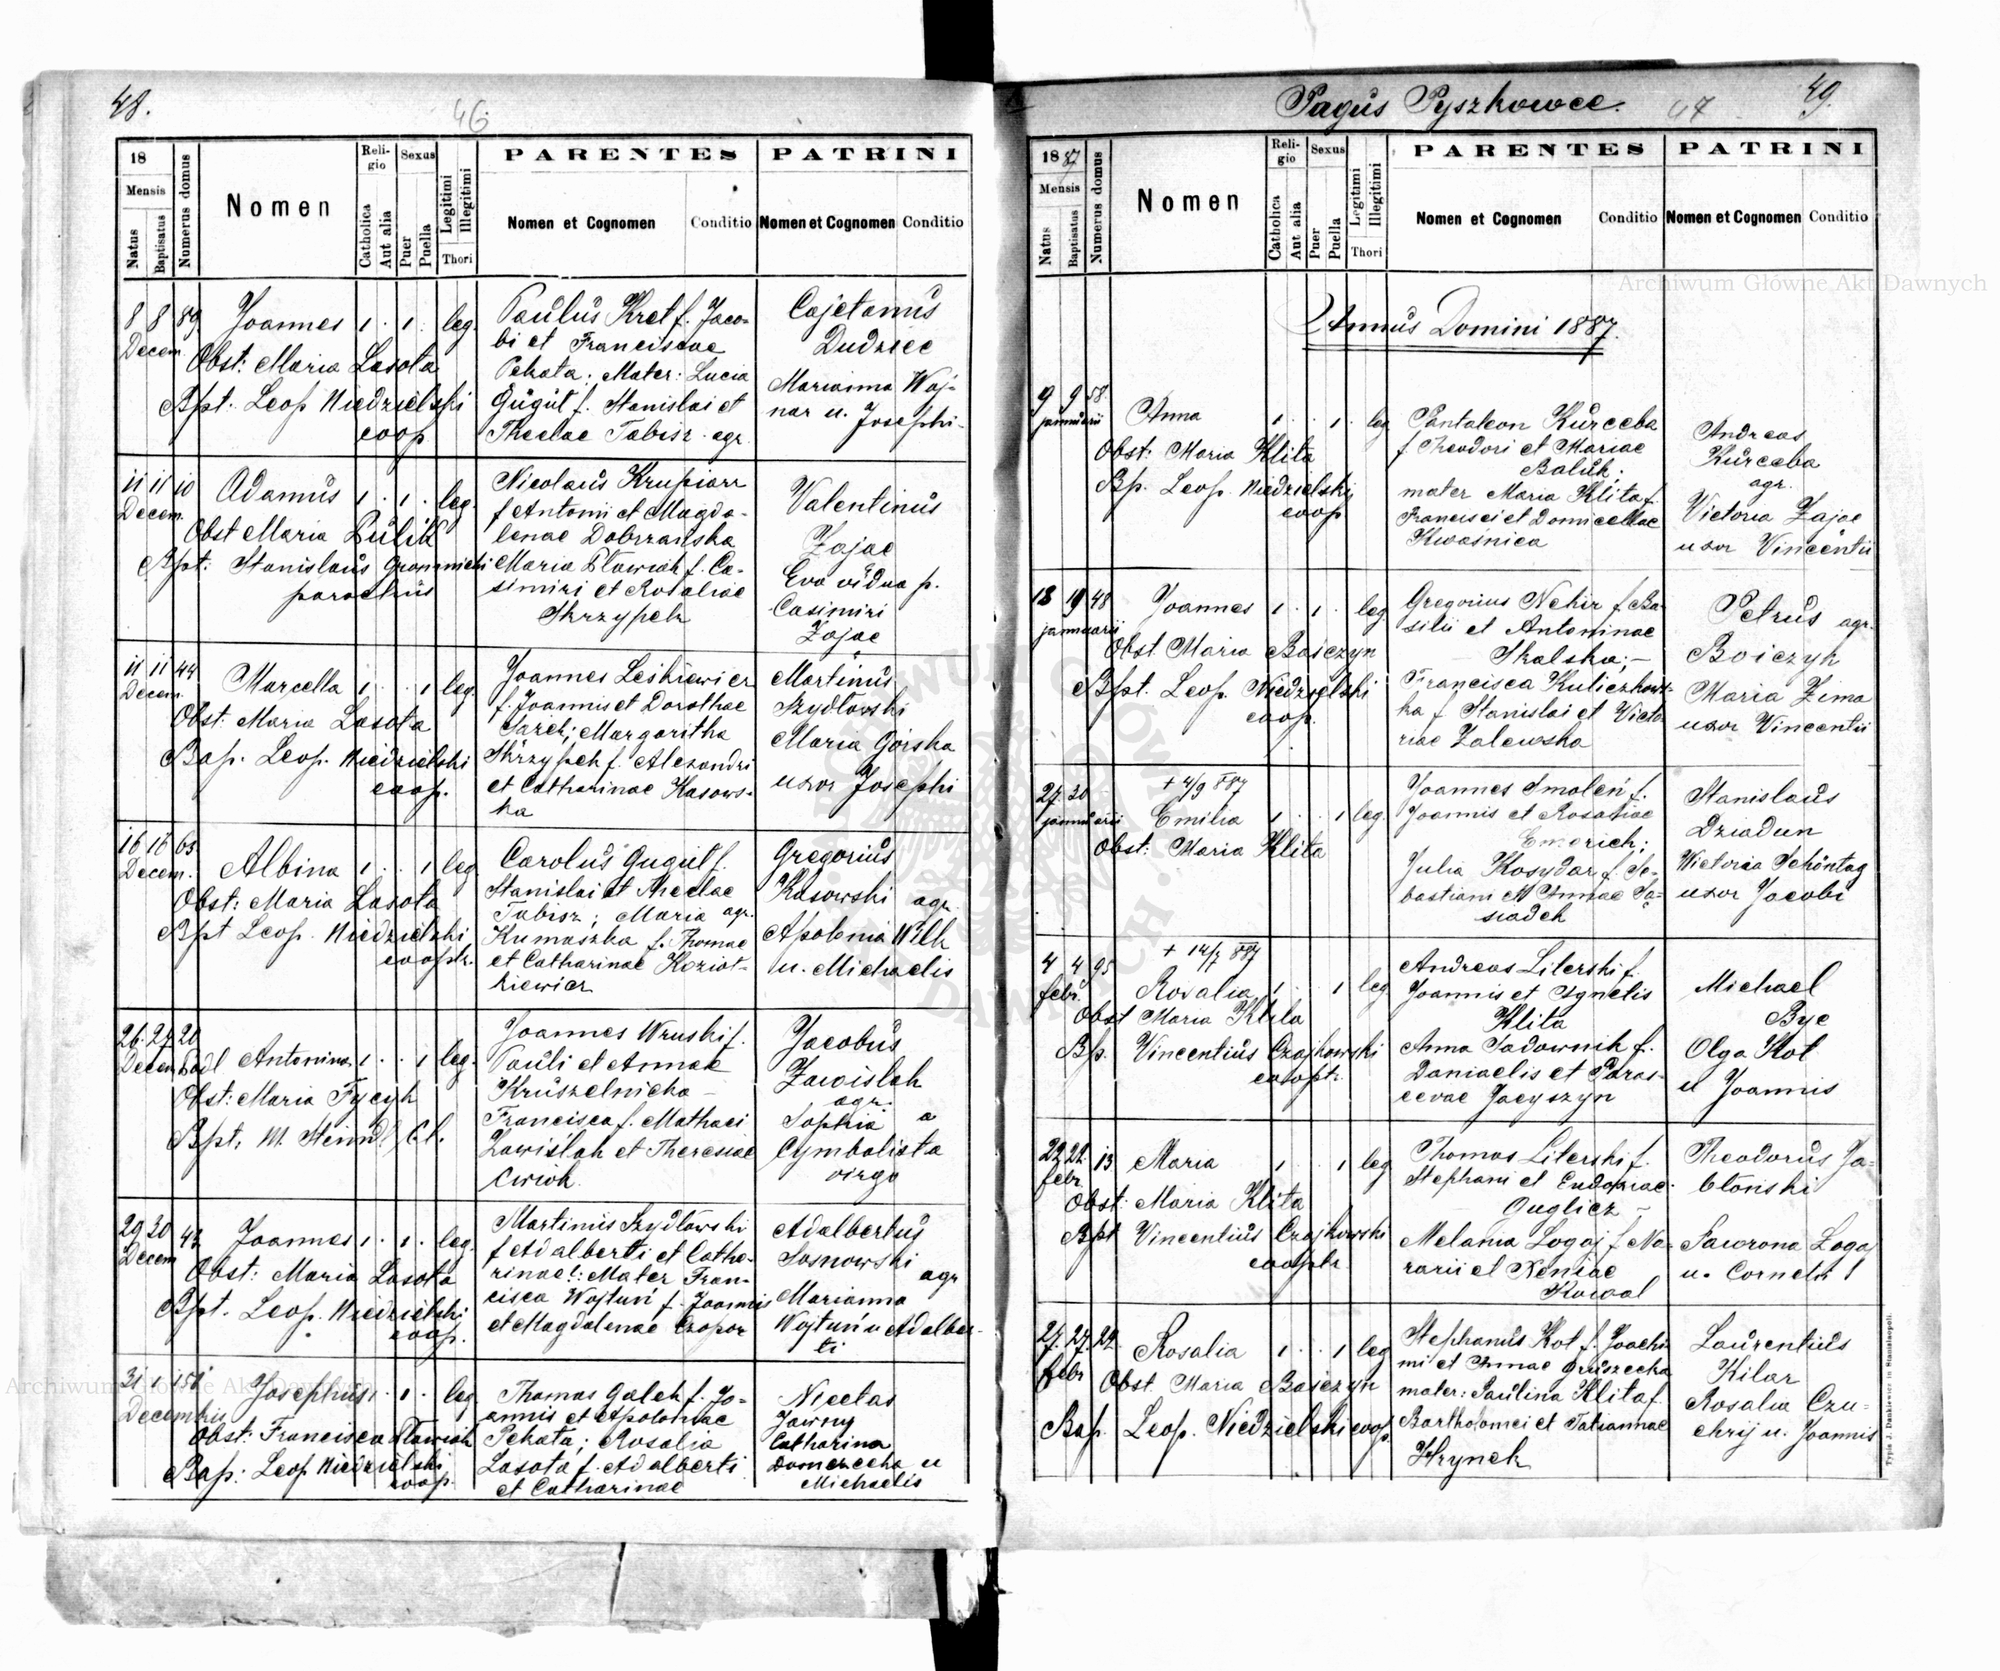 48.
46.
18
Mensis
Natus
Baptisatus
Numerus domus
Nomen
Religio
Catholica
Aut alia
Sexus
Puer
Puella
Legitimi
Illegitimi
Thori
PARENTES
Nomen et Cognomen
Conditio
PATRINI
Nomen et Cognomen
Conditio
8 8 89 Joannes 1 . 1 . leg.
Decem.
Obst: Maria Lasota
Bpt. Leop Niedzielski
coop
Paulus Kret f. Jaco-
bi et Franciscae
Pekata; Mater: Lucia
Gugut f. Stanislai et
Theclae Tabisz agr.
Cajetanus
Dudziec
Marianna Woj-
nar u. Josephi-
11 11 10 Adamus 1 . 1 . leg.
Decem.
Obst Maria Pulik
Bpt: Stanislaus Gromnicki
parochus
Nicolaus Krupiarz
f Antonii et Magda-
lenae Dobrzańska
Maria Pławiak f. Ca-
simiri et Rosaliae
Skrzypek
Valentinus
Zając
Eva vidua p.
Casimiri
Zając
11 11 44 Marcella 1 . . 1 leg.
Decem.
Obst: Maria Lasota
Bap. Leop. Niedzielski
coop.
Joannes Leskiewicz
f. Joannis et Dorothae
Margaritha
Skrzypek f. Alexandri
et Catharinae Kasows-
ka
Martinus
Szydłowski
Maria Górska
uxor Josephi
16 16 63 Albina 1 . . 1 leg
Decem.
Obst: Maria Lasota
Bpt Leop. Niedzielski
cooptr.
Carolus Gugut f.
Stanislai et Theclae
Tabisz; Maria agr.
Kumaszka f. Thomae
et Catharinae Koziot-
kiewicz
Gregorius
Kasowski agr.
Apolonia Wilk
u. Michaelis
26. 27. 20
Decem. Antonina 1 . . 1 leg.
Obst: Maria Tycyk
Bpt,
Joannes Wruski f.
Pauli et Annae
Kruszelnicka -
Francisca f. Mathaei
Zawiślak et Theresiae
Ćwiok.
Jacobus
Zawislak
agr.
Sophia a
Cymbalista
virgo
29 30 43 Joannes 1 . 1 . leg.
Decem
Obst: Maria Lasota
Bpt. Leop. Niedzielski
coop.
Martinus Szydłowski
f Adalberti et Catha-
rinae: Mater Fran-
cisca Wojtuń f. Joannis
et Magdalenae Czopor
Adalbertus
Sosnowski
agr
Marianna
Wojtuń u Adalber-
ti
31 1 151 Josephus 1 . 1 . leg
Decembris
Obst: Francisca Pławiak
Bap: Leop Niedzielski
coop.
Thomas Galek f. Jo-
annis et Apoloniae
Pekata; Rosalia
Lasota f. Adalberti
et Catharinae
Nicetas
Jawny
Catharina
u
Michaelis
Pagus Pyszkowce.
47
49.
1887
Mensis
Natus
Baptisatus
Numerus domus
Nomen
Religio
Catholica
Aut alia
Sexus
Puer
Puella
Legitimi
Illegitimi
Thori
PARENTES
Nomen et Cognomen
Conditio
PATRINI
Nomen et Cognomen
Conditio
Annus Domini 1887.
9 9 58. Anna 1 . . 1 . leg
januarii
Obst: Maria Klita
Bp. Leop. Niedzielski
coop
Pantaleon Kurceba
f. Theodori et Mariae
Baluk;
mater Maria Klita f.
Francisci et Domicellae
Kwaśnica
Andreas
Kurceba
agr.
Victoria Zając
uxor Vincentii
18 19 48 Joannes 1 . 1 . leg
januarii
Obst Maria Bojczyn
Bpt. Leop. Niedzielski
coop.
Gregorius Nekir f. Ba-
silii et Antoninae
Skalska; -
Francisca Kuliczkows-
ka f Stanislai et Victo-
riae Zalewska
Petrus agr.
Boiczyk
Maria Zima
uxor Vincentii
+ 4/9 887
27. 30
januarii Emilia 1 . . 1 leg.
Obst: Maria Klita
Joannes Smoleń f.
Joannis et Rosaliae
Emerich;
Julia Kosydar f. Se-
bastiani et Annae Są-
siadek
Stanislaus
Dziadun
Wictoria Schöntag
uxor Jacobi
+ 14/7 887
4 4 95 Rosalia 1 . . 1 leg
febr.
Obst Maria Klita
Bp. Vincentius Czajkowski
cooptr.
Andreas Literski f.
Joannis et Agnetis
Klita
Anna Sadownik f.
Danielis et Paras-
cevae Jacyszyn
Michael
Byc
Olga Kot
u Joannis
22 22 13 Maria 1 . . 1 leg
febr
Obst: Maria Klita
Bpt Vincentius Czajkowski
cooptr
Thomas Literski f.
Stephani et Eudoxiae
Cuglicz -
Melania Logoj f. Na-
zarii et Xeniae
Kowal
Theodorus Ja-
błoński
Sawrona Logoj
u. Cornelii
27. 27. 22. Rosalia 1 . . 1 leg
febr
Obst. Maria Bojczyn
Bap. Leop. Niedzielski coop.
Stephanus Kot f. Joachi-
mi et Annae Gruszecka
mater: Paulina Klita f.
Bartholomei et Tatiannae
Hrynek
Laurentius
Kilar
Rosalia Czu-
chrij u. Joannis
Typis J. Dankiewicz in Stanislaopoli.
Archiwum Główne Akt Dawnych
Archiwum Główne Akt Dawnych
ARCHIWUM GŁÓWNE AKT DAWNYCH